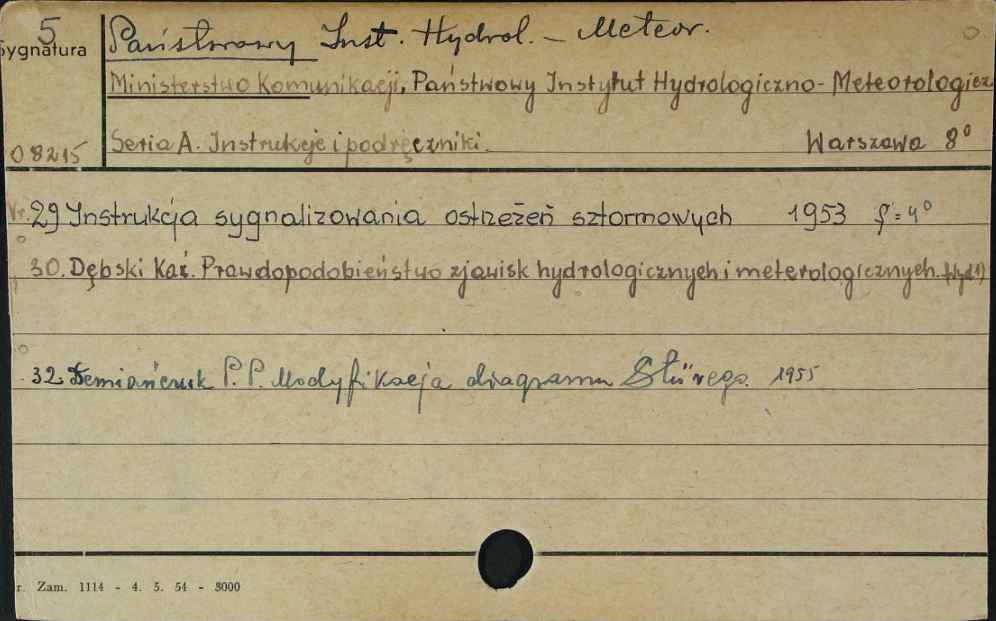 5 Państwowy Inst. Hydrol. - Meteor.
Sygnatura
Ministerstwo Komunikacji, Państwowy Instytut Hydrologiczno-Meteorologicz
08215 Seria A. Instrukcje i podręczniki. Warszawa 8°
Nr. 29 Instrukcja sygnalizowania ostrzeżeń sztormowych 1953 f = 4°
30. Dębski Kaź. Prawdopodobieństwo zjawisk hydrologicznych i meterologicznych. (Wyd 1)
32 Demiańczuk P. P. Modyfikacja diagramu Stüvego. 1955
r. Zam. 1114 - 4. 5. 54 - 8000